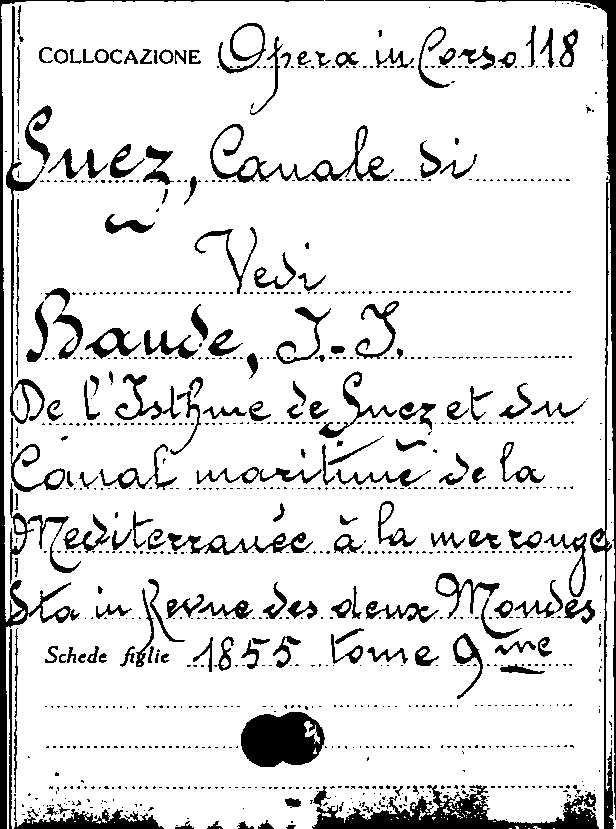 COLLOCAZIONE Opera in Corso 118
Suez, Canale di
Vedi
Baude, J.-J.
De l'Isthme de Suez et du
Canal maritime de la
Mediterranée à la mer rouge
Sta in Revue des deux Mondes
Schede figlie 1855 tome 9me